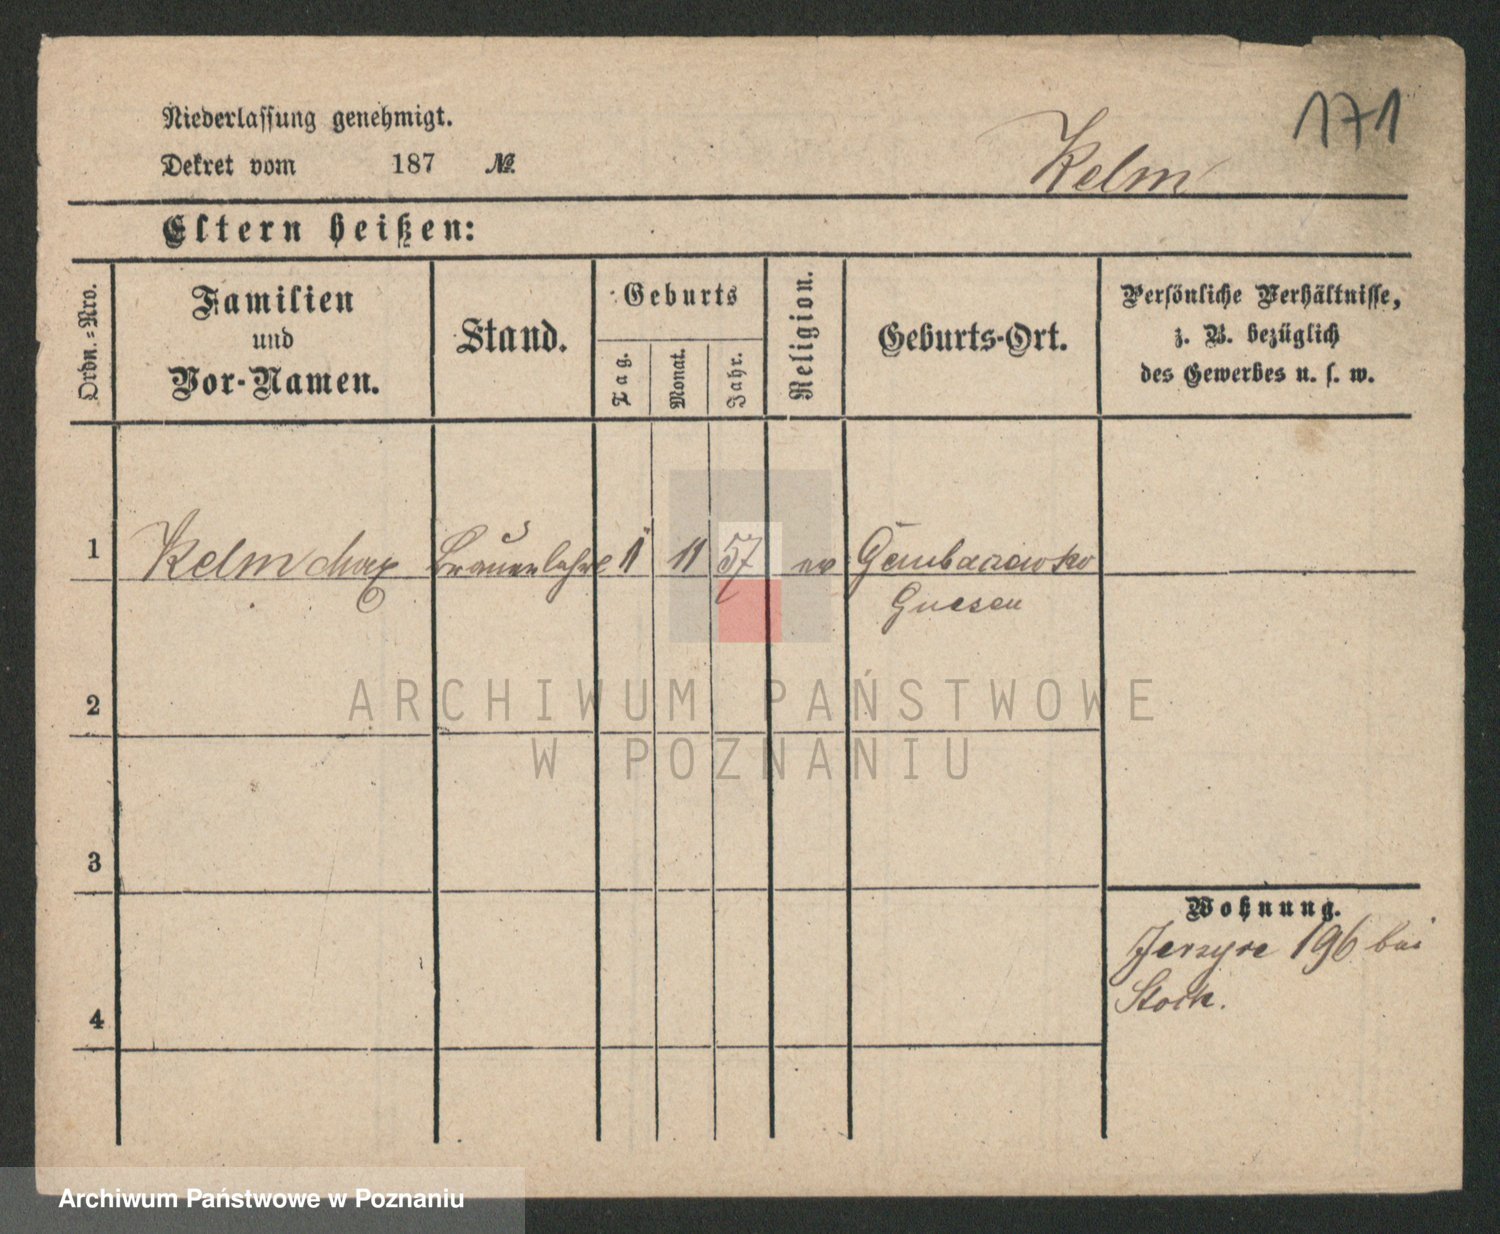 171
Niederlassung genehmigt.
Dekret vom 187 №
Kelm
Eltern heißen:
Ordn.-Nro.
Familien und Vor-Namen.
Stand.
Geburts
Tag. Monat. Jahr.
Religion.
Geburts-Ort.
Persönliche Verhältnisse,
z. B. bezüglich
des Gewerbes u. s. w.
1 Kelm Max 1 11 57 ev
Gnesen
2
ARCHIWUM PAŃSTWOWE
W POZNANIU
3
Wohnung.
Jerzyce 196 bei
Stock.
4
Archiwum Państwowe w Poznaniu